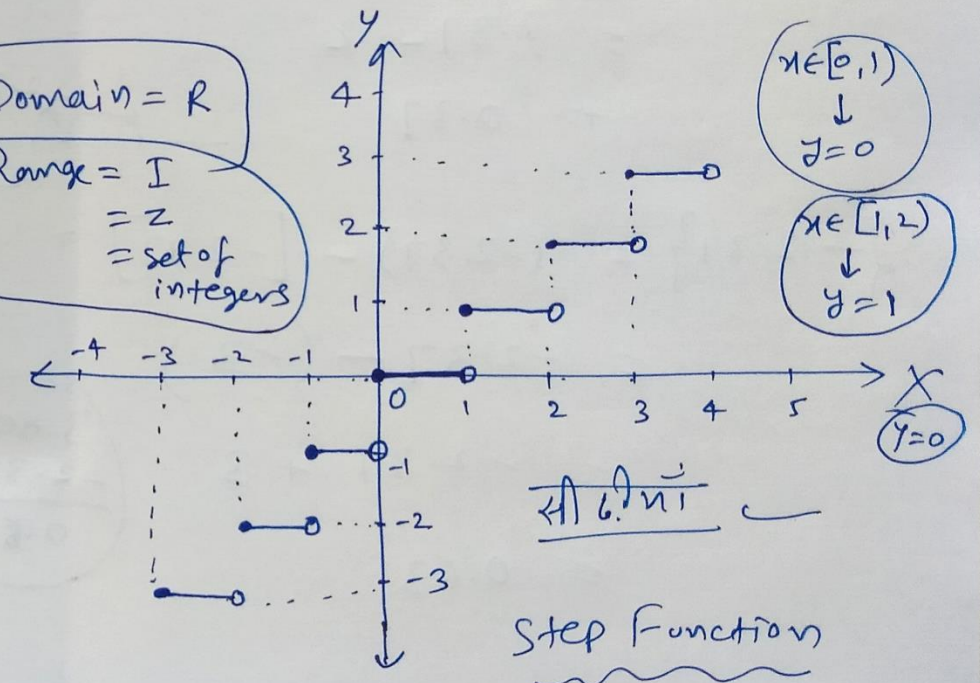 Domain = R
Range = I
= Z
= set of
integers
y
4
3
2
1
x∈[0,1)
↓
y=0
x∈[1,2)
↓
y=1
-4 -3 -2 -1
0 1 2 3 4 5
X
y=0
-1
-2
-3
सीढ़ीयाँ
Step Function